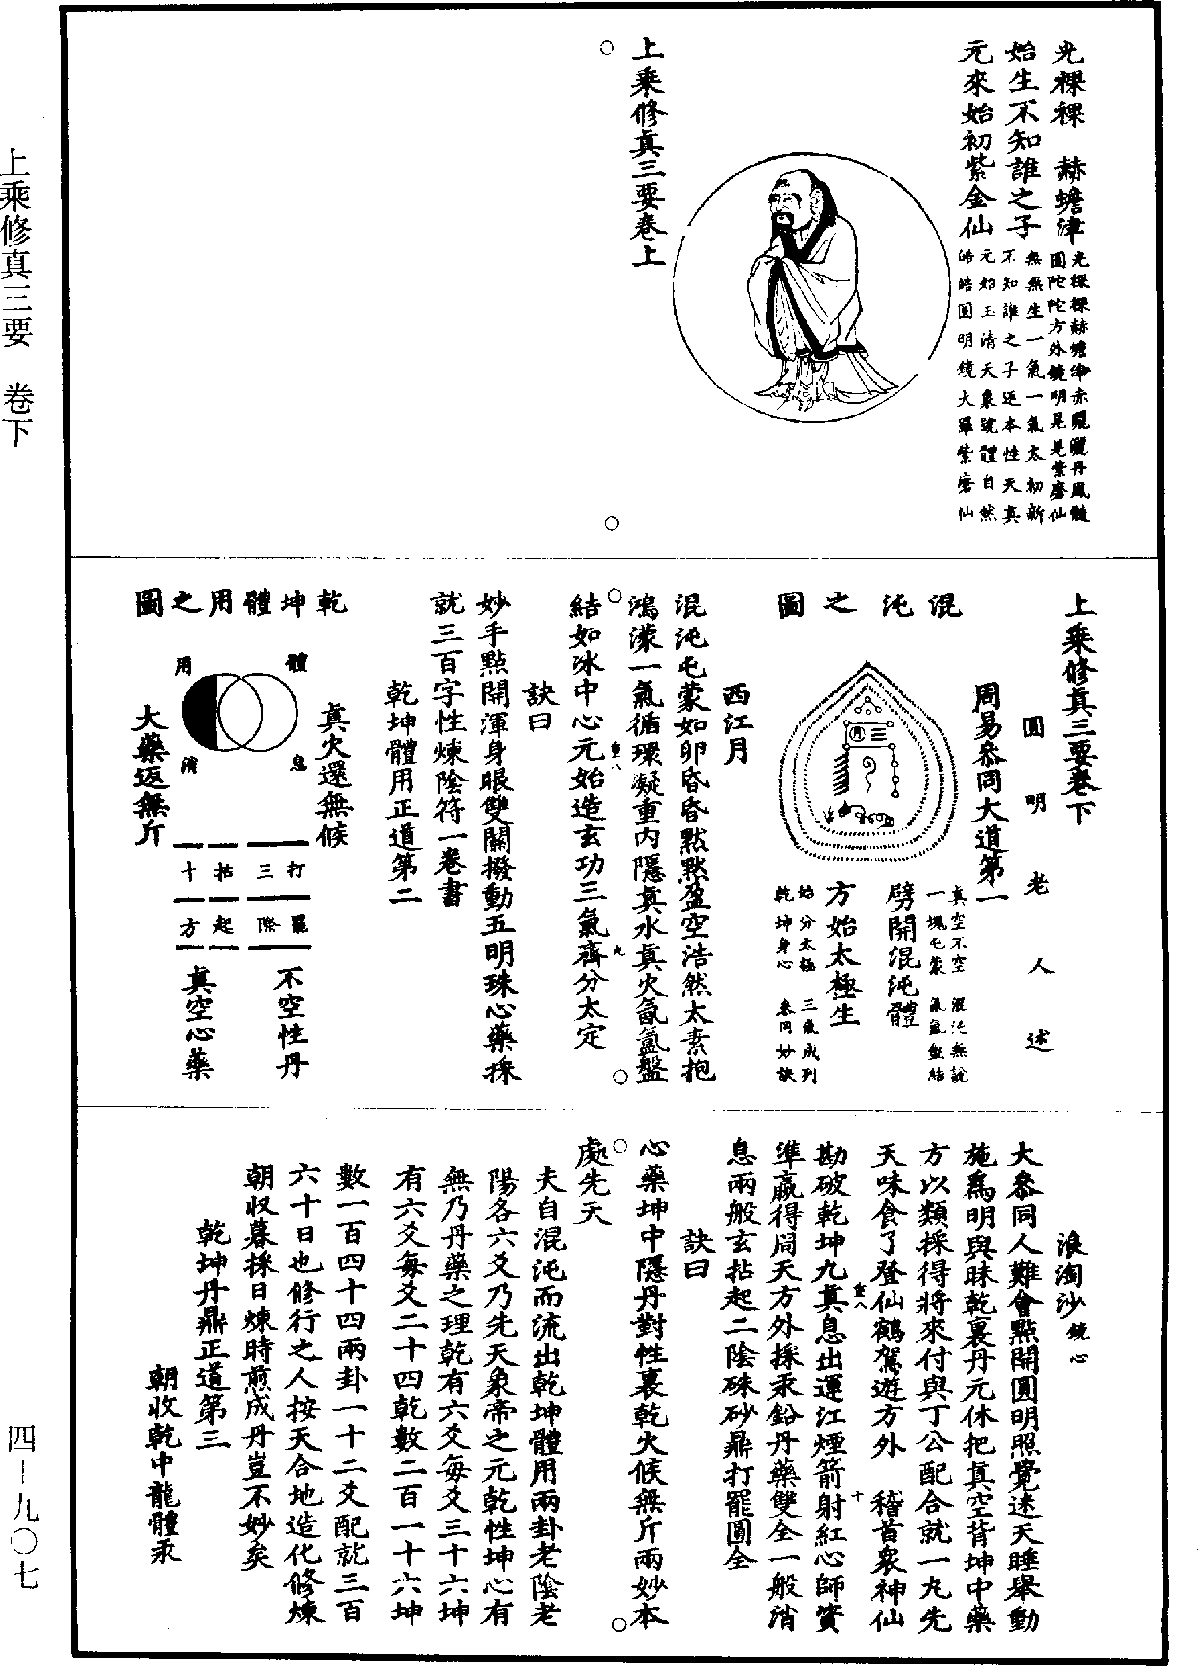 上乘修真三要　卷下
四－九〇七
光稞稞　赫蟾津
始生不知誰之子
元來始初紫金仙
光稞稞赫蟾津赤曬曬丹鳳髓
圓陀陀方外鏡明晃晃紫磨仙
無無生一氣一氣太初新
不知誰之子返本性天真
元始玉清天象號體自然
皓皓圓明鏡大羅紫磨仙
上乘修真三要卷上
上乘修真三要卷下
圓明老人述
周易叅同大道第一
混沌之圖
真空不空　混沌無說
一塊屯蒙　氤氳盤結
劈開混沌體
方始太極生
始分太極　三氣成列
乾坤身心　叅同妙訣
西江月
混沌屯蒙如卵昏昏默默盈空浩然太素抱
鴻濛一氣循環凝重內隱真水真火氤氳盤
結如冰中心元始造玄功三氣齊分太定
訣曰
妙手點開渾身眼雙關撥動五明珠心藥採
就三百字性煉陰符一卷書
乾坤體用正道第二
乾坤體用之圖
真火還無候
體
用
息
消
大藥返無斤
打罷
三際
拈起
十方
不空性丹
真空心藥
浪淘沙鏡心
大叅同人難會點開圓明照覺迷天睡舉動
施為明與昧乾裏丹元休把真空背坤中藥
方以類採得將來付與丁公配合就一丸先
天味食了登仙鶴駕遊方外　稽首衆神仙
勘破乾坤九真息出運江煙箭射紅心師實
準贏得周天方外採汞鉛丹藥雙全一般消
息兩般玄拈起二陰硃砂鼎打罷圓全
訣曰
心藥坤中隱丹對性裏乾火候無斤兩妙本
處先天
夫自混沌而流出乾坤體用兩卦老陰老
陽各六爻乃先天象帝之元乾性坤心有
無乃丹藥之理乾有六爻每爻三十六坤
有六爻每爻二十四乾數二百一十六坤
數一百四十四兩卦一十二爻配就三百
六十日也修行之人按天合地造化修煉
朝收暮採日煉時煎成丹豈不妙矣
乾坤丹鼎正道第三
朝收乾中龍體汞